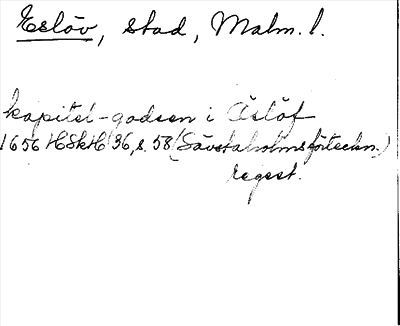 Eslöv, stad, Malm. l.
kapitel-godsen i Äslöf
1656 HSkH 36, s. 58 (Sävstaholmsförteckn.)
regest.